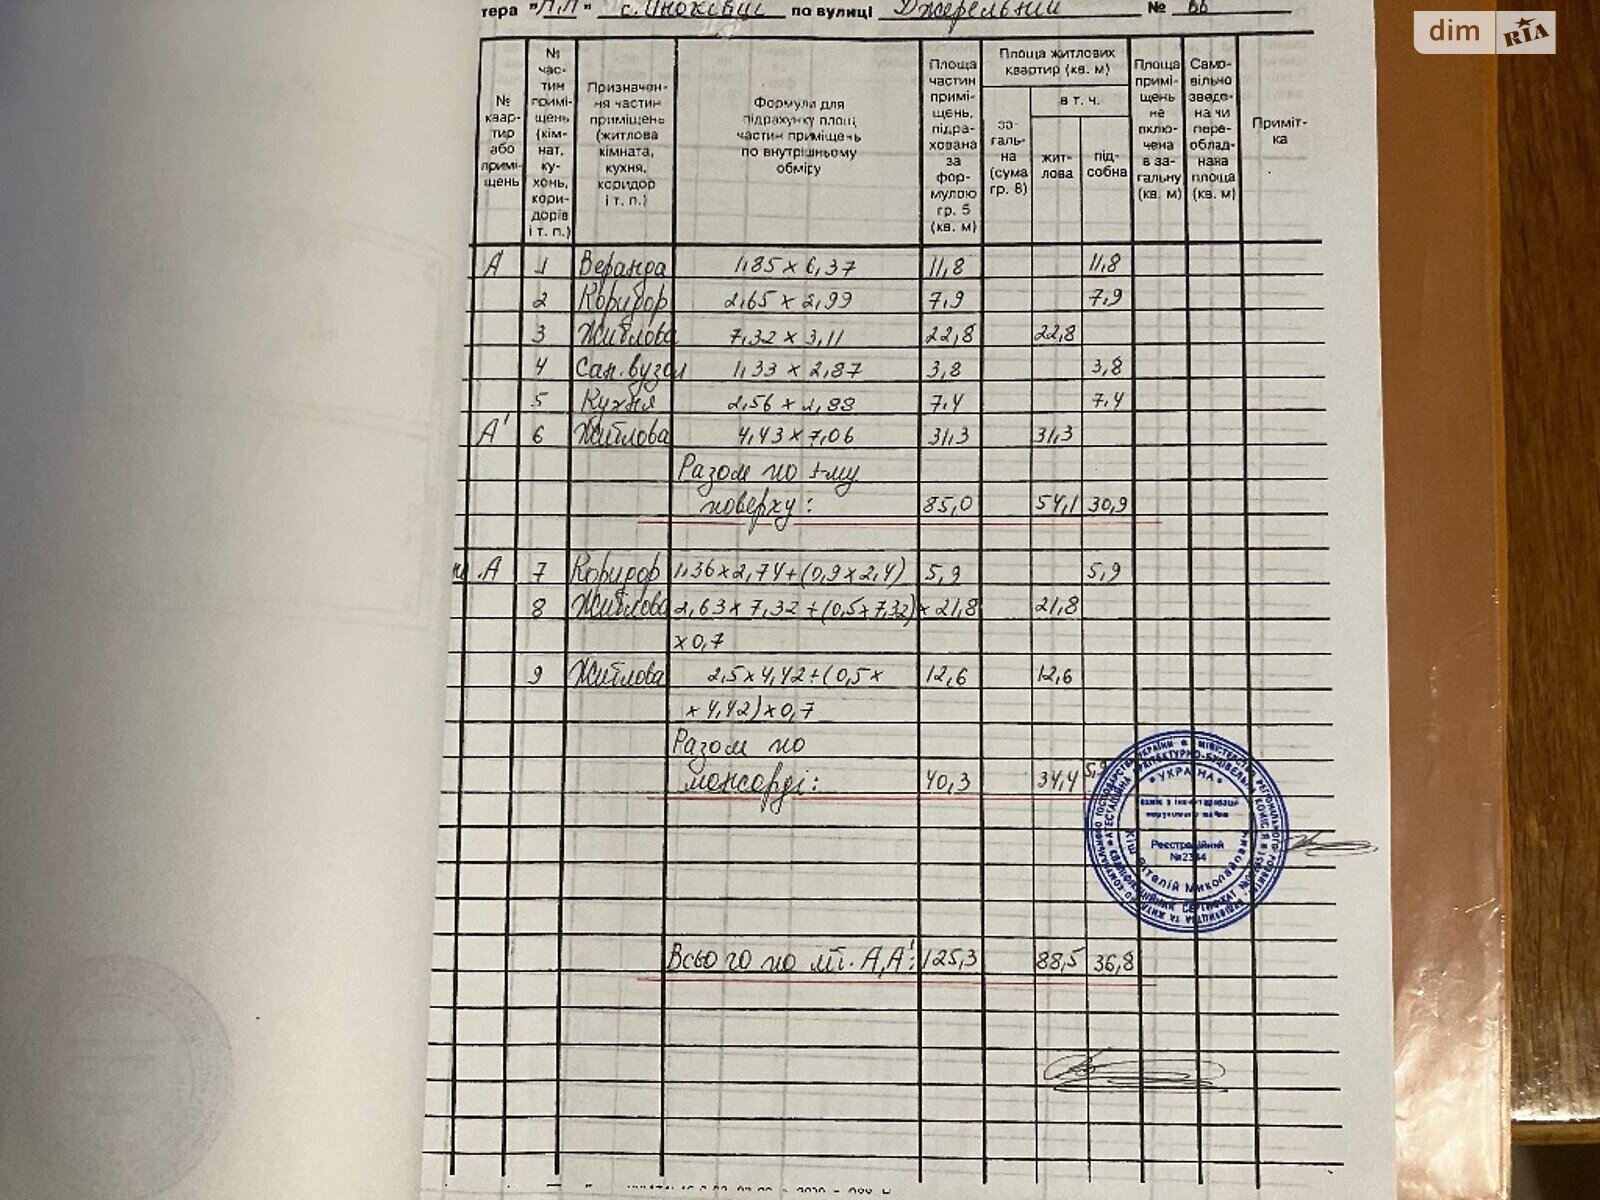 dim RIA
тера "А,А'" с. Іноківці по вулиці Джерельний №
№ квартир або приміщень
№ частин приміщень (кімнат, кухонь, коридорів і т. п.)
Призначення частин приміщень (житлова кімната, кухня, коридор і т. п.)
Формули для підрахунку площ частин приміщень по внутрішньому обміру
Площа частин приміщень, підрахована за формулою гр. 5 (кв. м)
Площа житлових квартир (кв. м)
загальна (сума гр. 8)
в т. ч.
житлова
підсобна
Площа приміщень не включена в загальну (кв. м)
Самовільно зведена чи переобладнана площа (кв. м)
Примітка
А 1 Веранда 1,85 х 6,37 11,8 11,8
2 Коридор 2,65 х 2,99 7,9 7,9
3 Житлова 7,32 х 3,11 22,8 22,8
4 Сан. вузол 1,33 х 2,87 3,8 3,8
5 Кухня 2,56 х 2,88 7,4 7,4
А' 6 Житлова 4,43 х 7,06 31,3 31,3
Разом по 1-му
поверху: 85,0 54,1 30,9
А 7 Коридор 1,36х2,74+(0,9х2,4) 5,9 5,9
8 Житлова 2,63х7,32+(0,5х7,32)х 21,8 21,8
х0,7
9 Житлова 2,5х4,42+(0,5х 12,6 12,6
х4,42)х0,7
Разом по
мансарді: 40,3 34,4 5,9
УКРАЇНА
Реєстраційний
№2344
Кіш Віталій Миколайович
Всього по літ. А,А': 125,3 88,5 36,8